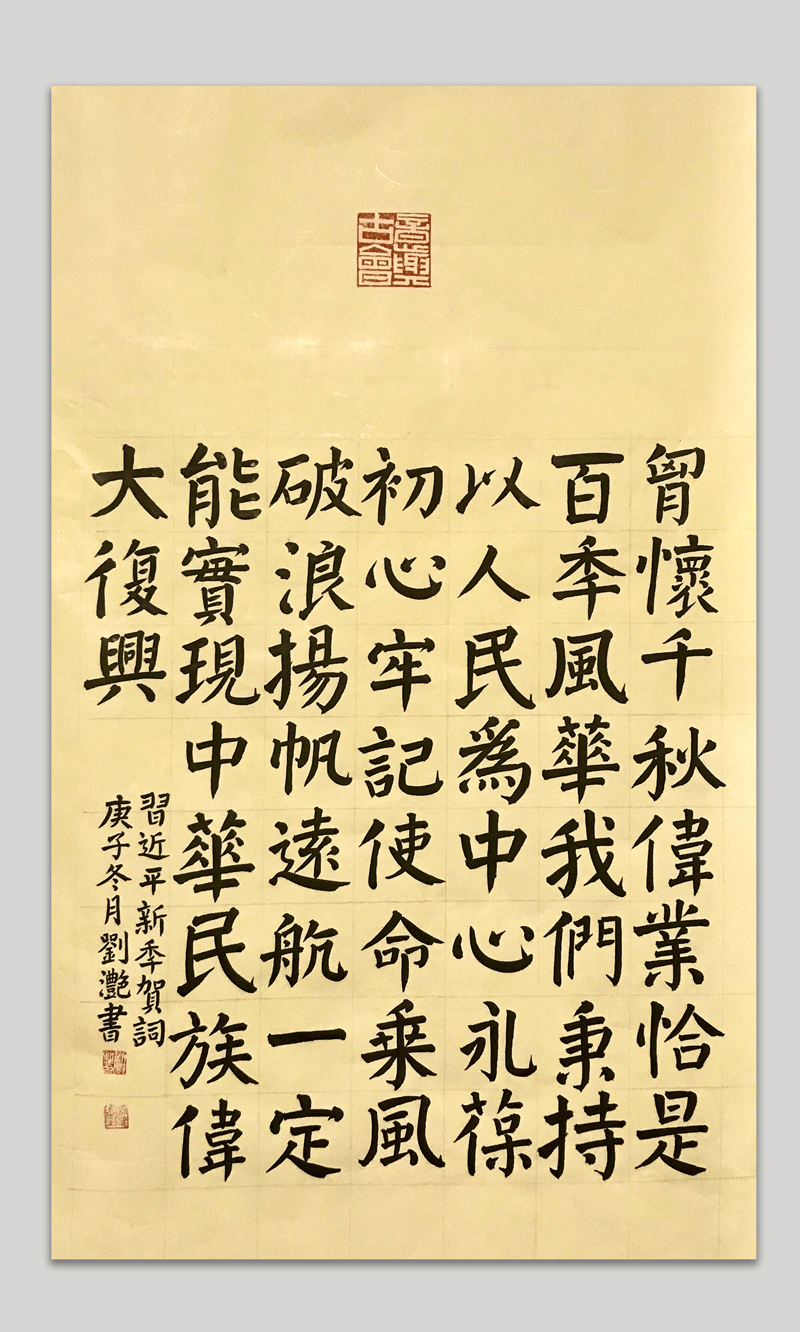 胷懷千秋偉業恰是
百秊風華我們秉持
以人民爲中心永葆
初心牢記使命乗風
破浪揚帆遠航一定
能實現中華民族偉
大復興
習近平新秊賀詞
庚子冬月劉灧書